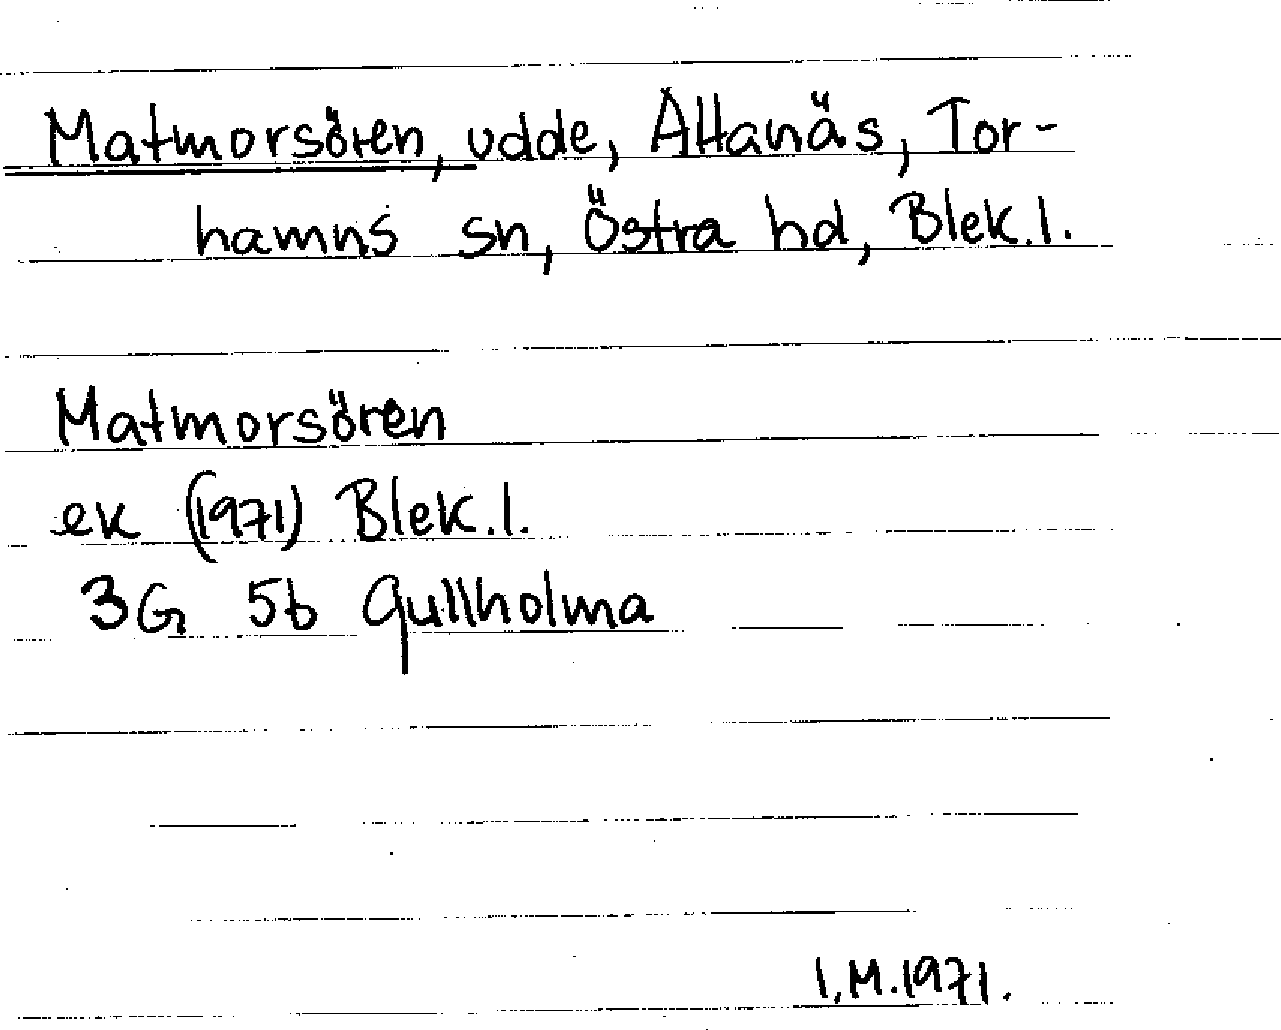 Matmorsören, udde, Attanäs, Tor-
hamns sn, Östra hd, Blek.l.
Matmorsören
ek (1971) Blek.l.
3G 5b Gullholma
I.M.1971.